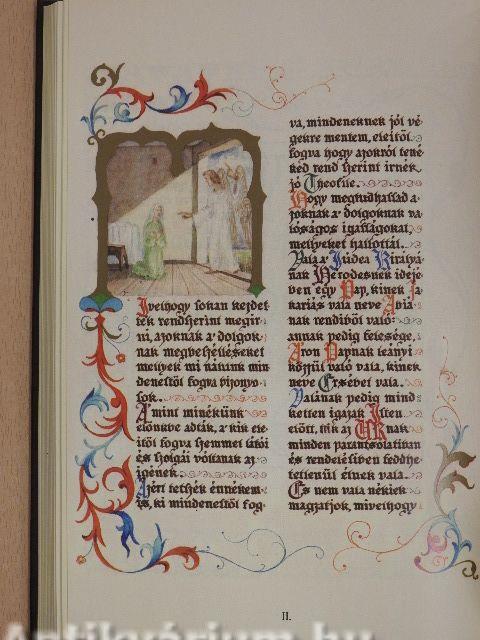 Ivelhogy sokan kezdet-
ték rendszerint megír-
ni, azoknak a' dolgok-
nak megbeszélléseket
mellyek mi nálunk min-
denestől fogva bizonyo-
sok.
A' mint minékünk
előnkve adták, a' kik ele-
itől fogva szemmel látói
és szolgái vóltanak az
igének.
Azért tetszék énnékem-
is, ki mindenestől fog-
va, mindeneknek jól vé-
gekre mentem, eleitől
fogva hogy azokról tené-
ked rend szerint írnék,
jó Theofile.
Hogy megtudhassad a-
zoknak a' dolgoknak va-
lóságos igasságokat,
mellyeket hallottál.
Vala a' Júdea Királyá-
nak Heródesnek idejé-
ben egy Pap, kinek Za-
kariás vala neve Abiá-
nak rendiből való:
annak pedig felesége,
Áron Papnak leányi
közzül való vala, kinek
neve Ersébet vala.
Valának pedig mind
ketten igazak Isten
előtt, kik az ÚRnak
minden parantsolatiban
és rendelésiben feddhe-
tetlenül éltek vala.
És nem vala nékiek
magzatjok, mivelhogy
II.
Antikvárium.hu